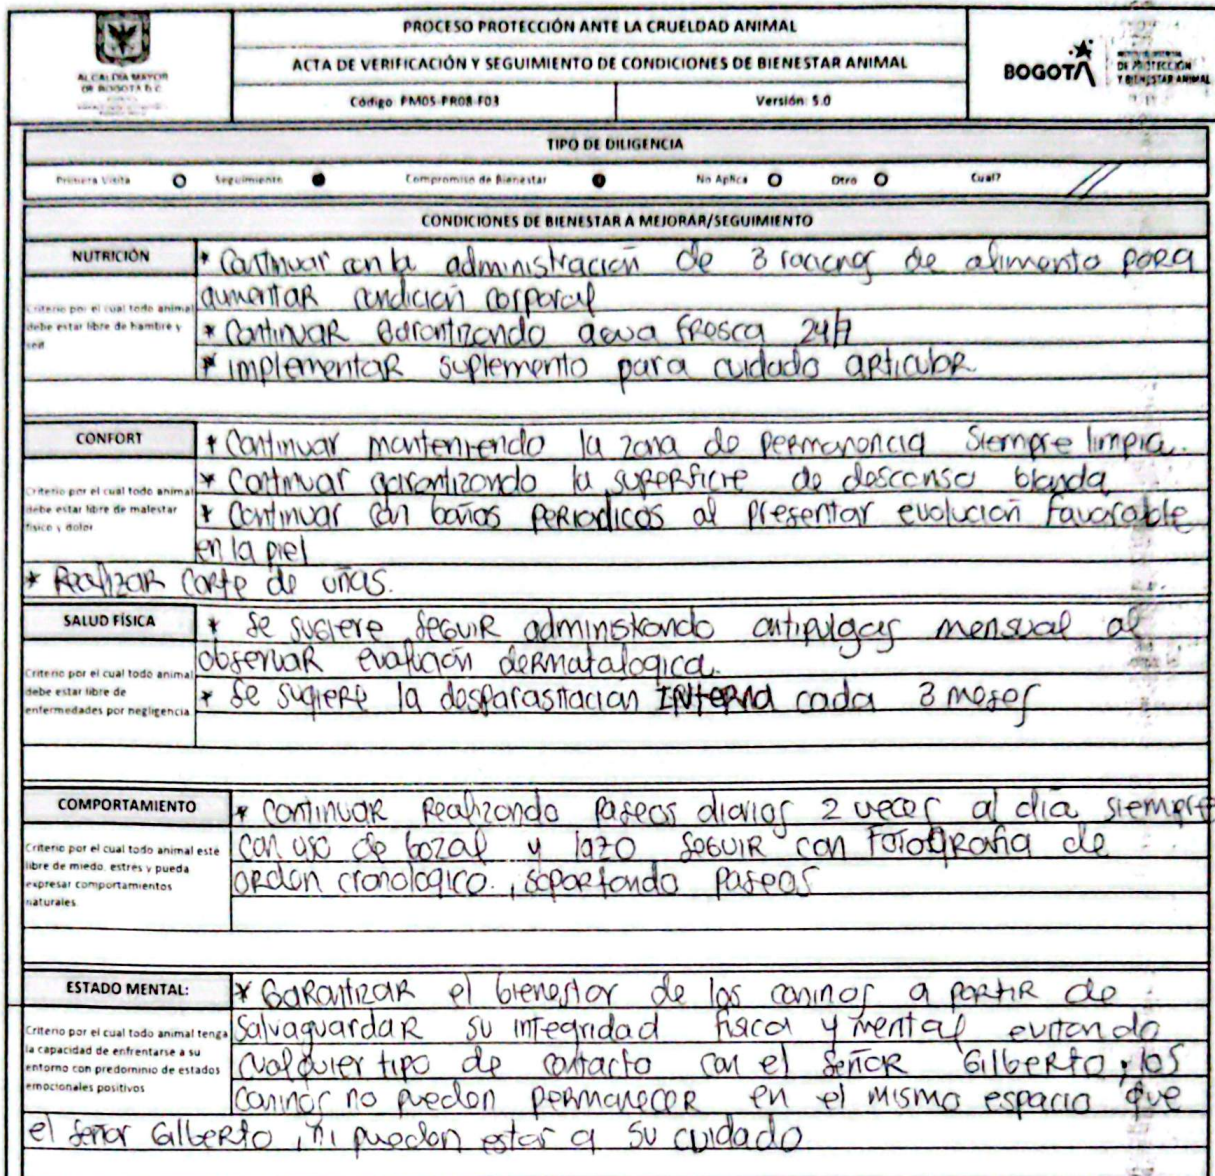 ALCALDÍA MAYOR
DE BOGOTÁ D.C.
PROCESO PROTECCIÓN ANTE LA CRUELDAD ANIMAL
ACTA DE VERIFICACIÓN Y SEGUIMIENTO DE CONDICIONES DE BIENESTAR ANIMAL
Código: PM05-PR08-F03
Versión: 5.0
BOGOTÁ
DE PROTECCIÓN
Y BIENESTAR ANIMAL
TIPO DE DILIGENCIA
Primera Visita Seguimiento Compromiso de Bienestar No Aplica Otro Cual?
CONDICIONES DE BIENESTAR A MEJORAR/SEGUIMIENTO
NUTRICIÓN
Criterio por el cual todo animal
debe estar libre de hambre y
sed
* Continuar con la administración de 3 raciones de alimento para
aumentar condición corporal
* Continuar Garantizando agua fresca 24/7
* implementar suplemento para cuidado articular
CONFORT
Criterio por el cual todo animal
debe estar libre de malestar
físico y dolor
* Continuar manteniendo la zona de permanencia siempre limpia.
* Continuar garantizando la superficie de descanso blanda
* Continuar con baños periodicos al presentar evolución favorable
en la piel
* Realizar corte de uñas.
SALUD FÍSICA
Criterio por el cual todo animal
debe estar libre de
enfermedades por negligencia
* Se sugiere seguir administrando antipulgas mensual al
observar evolución dermatologica.
* Se sugiere la desparasitacion INterna cada 3 meses
COMPORTAMIENTO
Criterio por el cual todo animal esté
libre de miedo, estres y pueda
expresar comportamientos
naturales
* Continuar Realizando paseos diarios 2 veces al día siempre
con uso de bozal y lazo seguir con Fotografia de
orden cronologico, soportando paseos
ESTADO MENTAL:
Criterio por el cual todo animal tenga
la capacidad de enfrentarse a su
entorno con predominio de estados
emocionales positivos
* Garantizar el bienestar de los caninos a partir de
salvaguardar su integridad fisica y mental evitando
cualquier tipo de contacto con el señor Gilberto, los
caninos no pueden permanecer en el mismo espacio que
el señor Gilberto, ni pueden estar a su cuidado